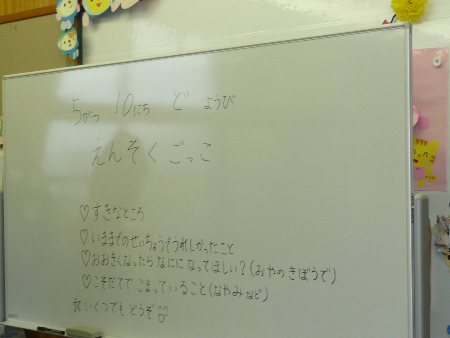 5がつ 10にち どようび
えんそくごっこ
♡すきなところ
♡いままでのせいちょうでうれしかったこと
♡おおきくなったらなにになってほしい?(おやのきぼうで)
♡こそだてでこまっていること(なやみなど)
☆いくつでもどうぞ